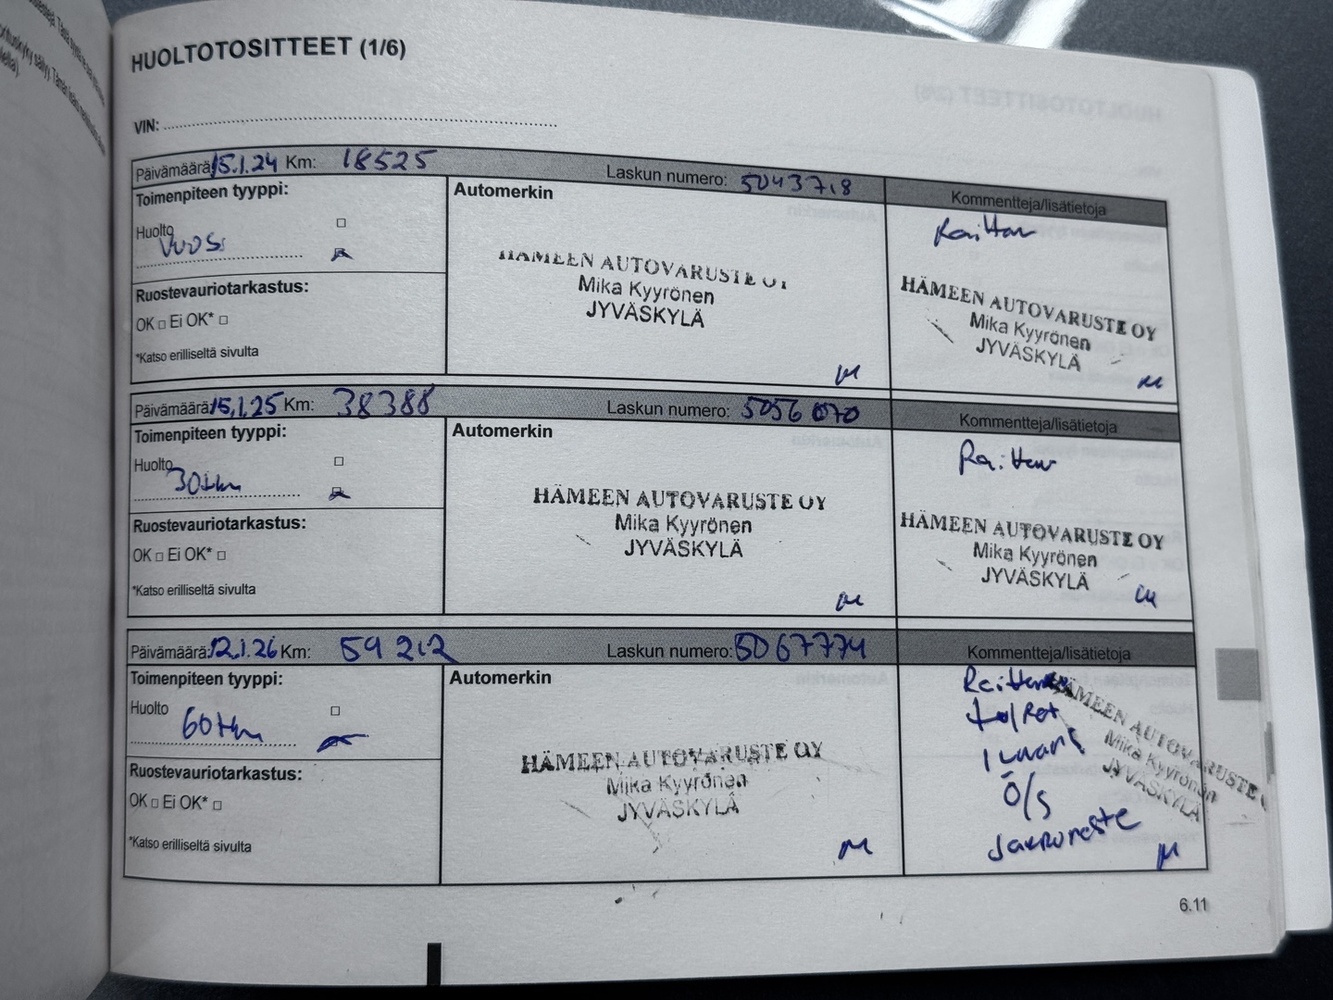 HUOLTOTOSITTEET (1/6)
VIN:
Päivämäärä: 15.1.24 Km: 18525 Laskun numero: 5043718
Toimenpiteen tyyppi:
Huolto
vuosi
Ruostevauriotarkastus:
OK □ Ei OK* □
*Katso erilliseltä sivulta
Automerkin
HÄMEEN AUTOVARUSTE OY
Mika Kyyrönen
JYVÄSKYLÄ
Kommentteja/lisätietoja
Raitten
HÄMEEN AUTOVARUSTE OY
Mika Kyyrönen
JYVÄSKYLÄ
Päivämäärä: 15.1.25 Km: 38388 Laskun numero: 5056070
Toimenpiteen tyyppi:
Huolto
30tkm
Ruostevauriotarkastus:
OK □ Ei OK* □
*Katso erilliseltä sivulta
Automerkin
HÄMEEN AUTOVARUSTE OY
Mika Kyyrönen
JYVÄSKYLÄ
Kommentteja/lisätietoja
Raitten
HÄMEEN AUTOVARUSTE OY
Mika Kyyrönen
JYVÄSKYLÄ
Päivämäärä: 12.1.26 Km: 59212 Laskun numero: 5067774
Toimenpiteen tyyppi:
Huolto
60tkm
Ruostevauriotarkastus:
OK □ Ei OK* □
*Katso erilliseltä sivulta
Automerkin
HÄMEEN AUTOVARUSTE OY
Mika Kyyrönen
JYVÄSKYLÄ
Kommentteja/lisätietoja
Raitten
Ö/S
Jarruneste
HÄMEEN AUTOVARUSTE
Mika Kyyrönen
JYVÄSKYLÄ
6.11